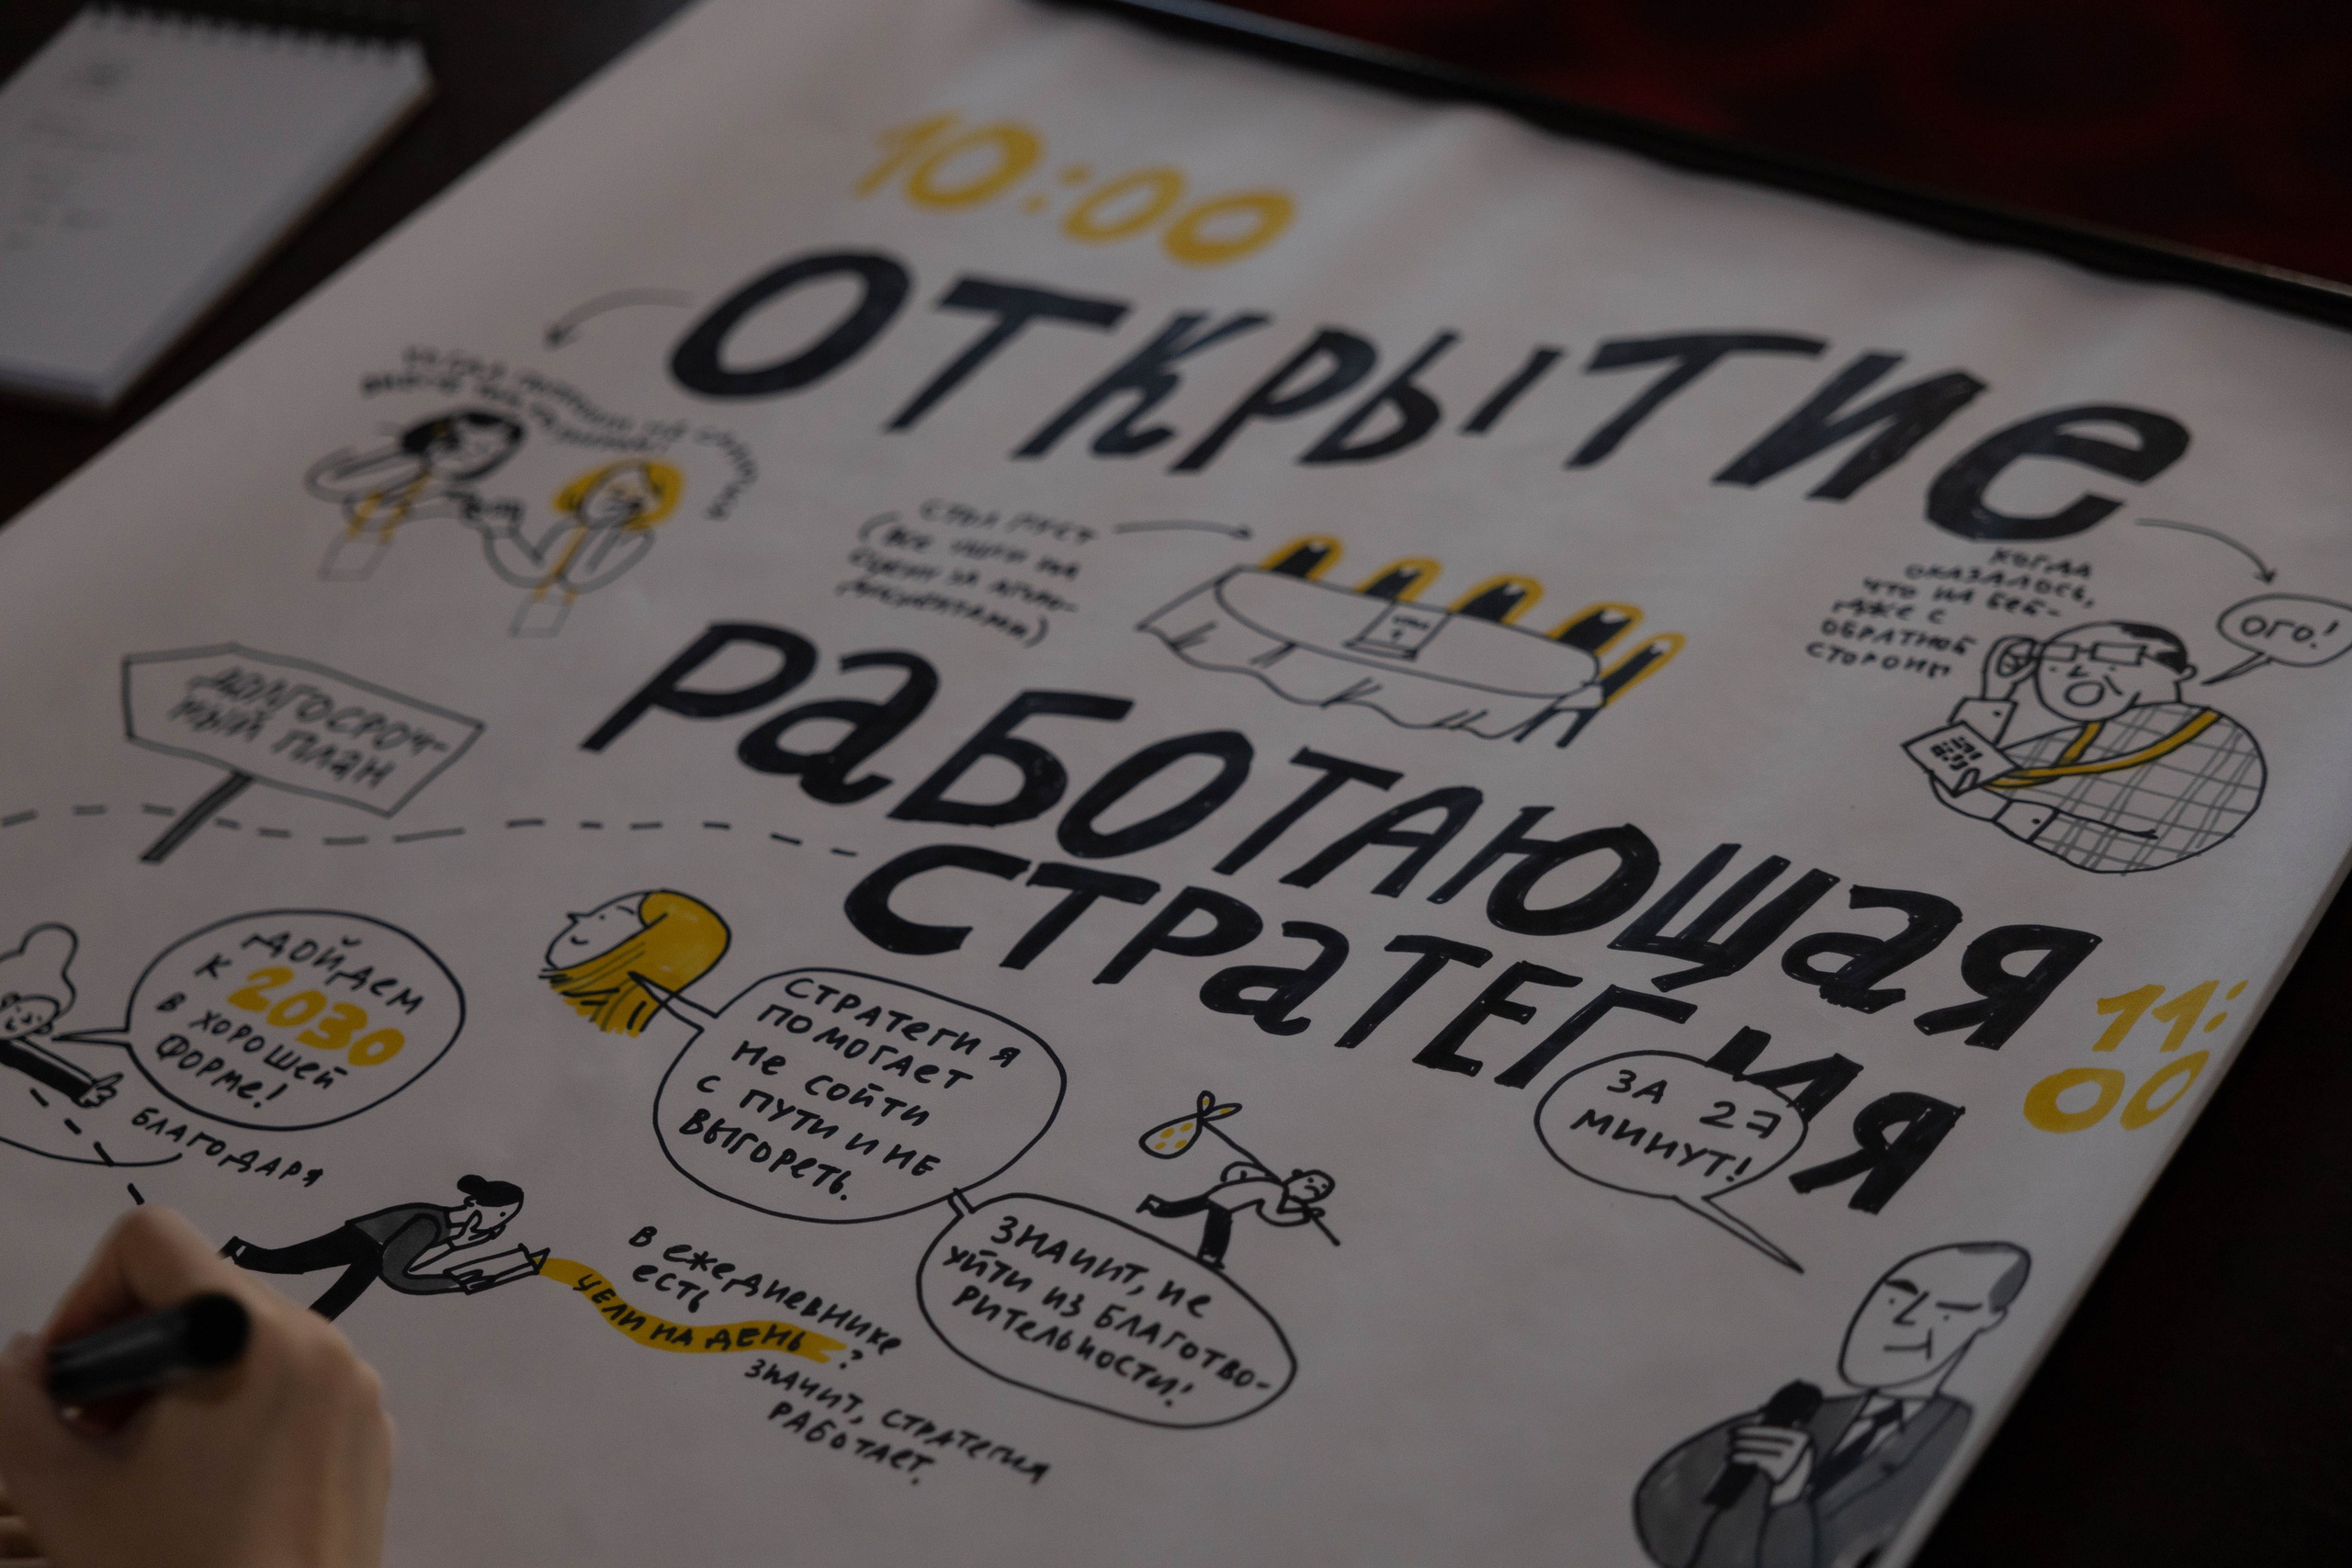 10:00
ОТКРЫТИЕ
СТОЛ ПУСТ
(ВСЕ УШЛИ НА
СЦЕНУ ЗА
КОГДА
ОКАЗАЛОСЬ,
ЧТО НА БЕЙ-
ДЖЕ С
ОБРАТНОЙ
СТОРОНЫ
ОГО!
РАБОТАЮЩАЯ
СТРАТЕГИЯ
11:
00
ДОЛГОСРОЧ-
НЫЙ ПЛАН
ДОЙДЕМ
К 2030
В ХОРОШЕЙ
ФОРМЕ!
БЛАГОДАРЯ
СТРАТЕГИЯ
ПОМОГАЕТ
НЕ СОЙТИ
С ПУТИ И НЕ
ВЫГОРЕТЬ.
ЗНАЧИТ, НЕ
УЙТИ ИЗ БЛАГОТВО-
РИТЕЛЬНОСТИ!
ЗА 27
МИНУТ!
В ЕЖЕДНЕВНИКЕ
ЕСТЬ
ЦЕЛИ НА ДЕНЬ
?
ЗНАЧИТ, СТРАТЕГИЯ
РАБОТАЕТ.